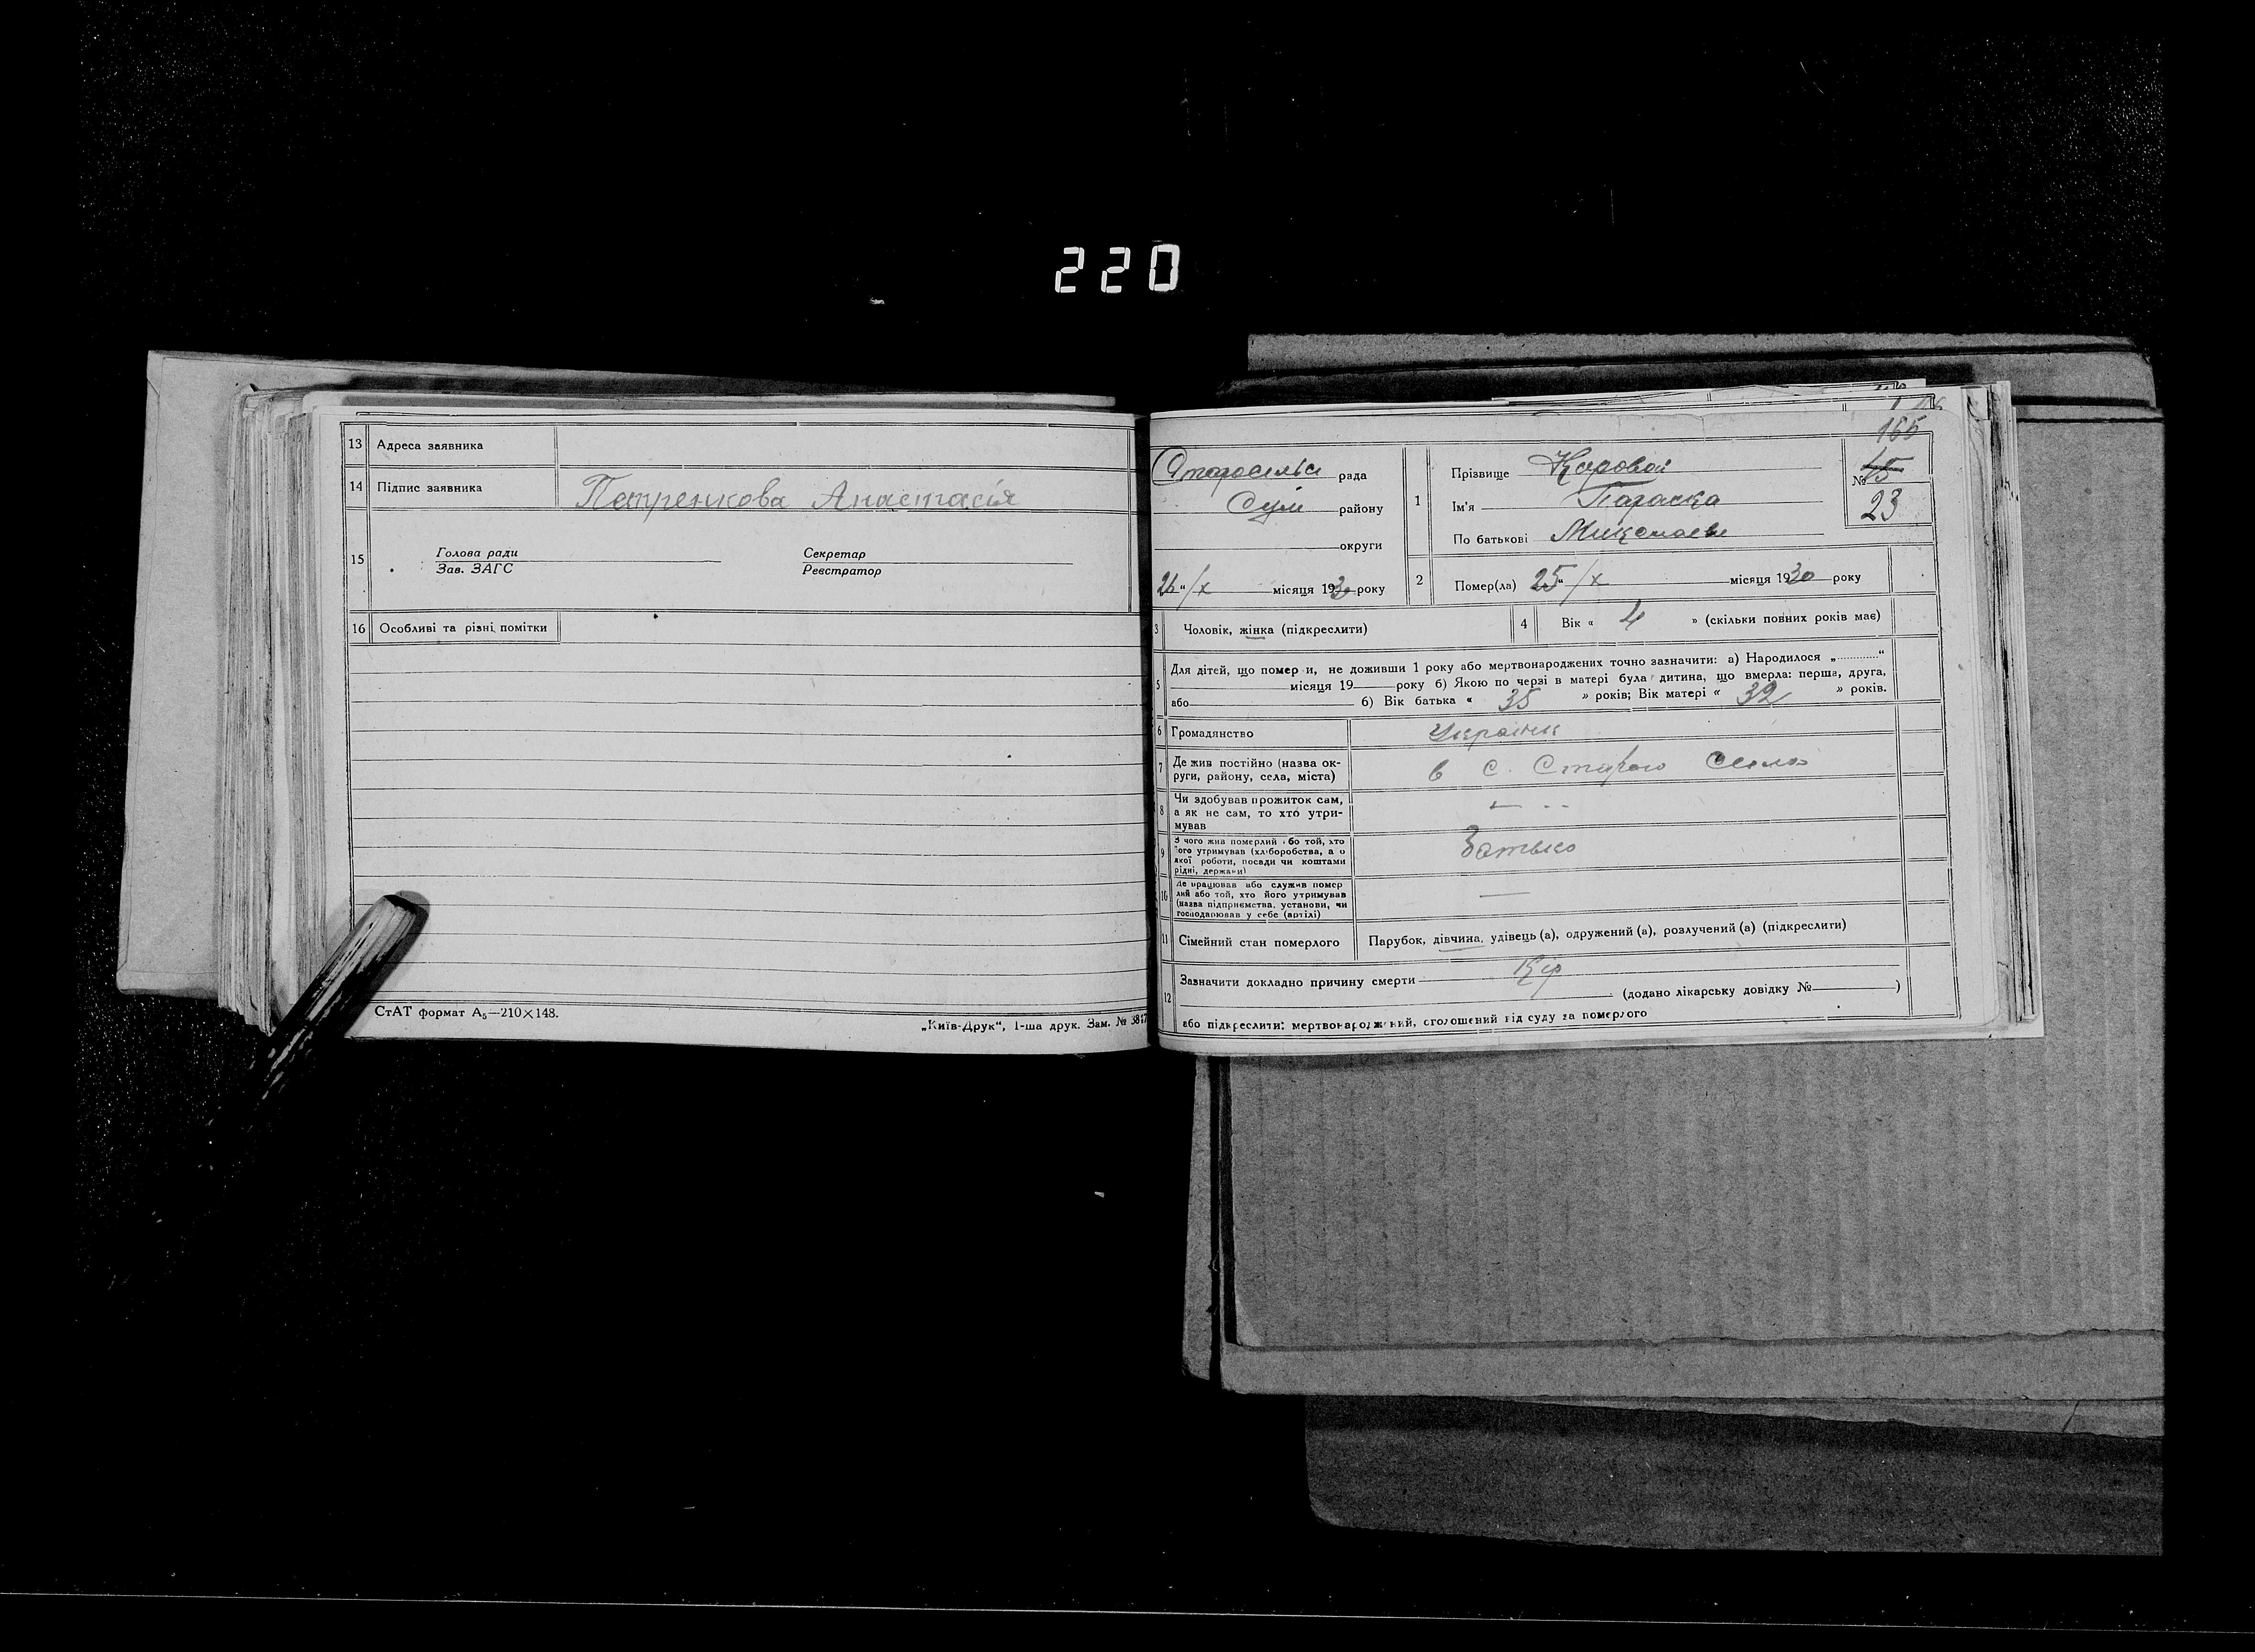 220
13 Адреса заявника
14 Підпис заявника Петренкова Анастасія
15 Голова ради Секретар
Зав. ЗАГС Реєстратор
16 Особливі та різні помітки
СтАТ формат А₅—210×148.
„Київ-Друк“, 1-ша друк. Зам. № 3817
165
Старосельс рада
Сум району
округи
26 “/х місяця 1930 року
1 Прізвище Коровай
Ім'я Параска
По батькові Миколаєв
№ 15
23
2 Помер(ла) 25 “/х місяця 1930 року
3 Чоловік, жінка (підкреслити)
4 Вік « 4 » (скільки повних років має)
5 Для дітей, що померли, не доживши 1 року або мертвонароджених точно зазначити: а) Народилося „............“
місяця 19 року б) Якою по черзі в матері була дитина, що вмерла: перша, друга,
або б) Вік батька « 35 » років; Вік матері « 32 » років.
6 Громадянство Українк
7 Де жив постійно (назва ок-
руги, району, села, міста) в с. Старого Села
8 Чи здобував прожиток сам,
а як не сам, то хто утри-
мував — --
9 З чого жив померлий або той, хто
його утримував (хліборобства, а о
якої роботи, посади чи коштами
рідні, держави) Батько
10 Де працював або служив помер
лий або той, хто його утримував
(назва підприємства, установи, чи
господарював у себе (артілі) —
11 Сімейний стан померлого Парубок, дівчина, удівець (а), одружений (а), розлучений (а) (підкреслити)
12 Зазначити докладно причину смерти Кір
(додано лікарську довідку № )
або підкреслити: мертвонароджений, оголошений від суду за померлого